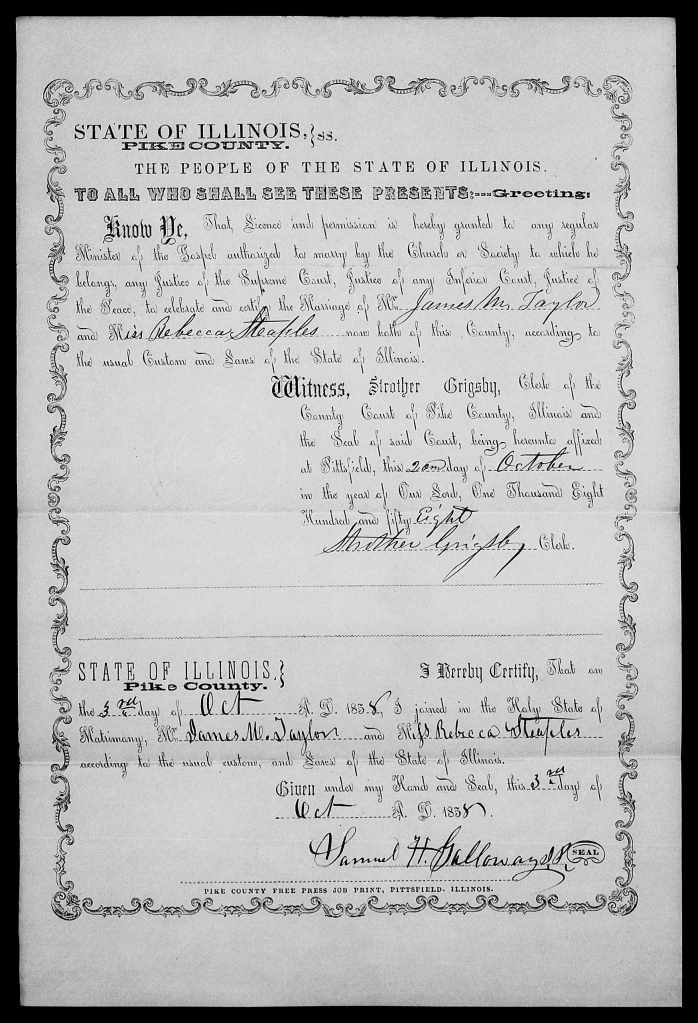 STATE OF ILLINOIS, } ss.
PIKE COUNTY.
THE PEOPLE OF THE STATE OF ILLINOIS.
TO ALL WHO SHALL SEE THESE PRESENTS:---Greeting:
Know Ye, That, Licence and permission is hereby granted to any regular
Minister of the Gospel authorized to marry by the Church or Society to which he
belongs, any Justice of the Supreme Court, Justice of any Inferior Court, Justice of
the Peace, to celebrate and certify the Marriage of Mr. James M. Taylor
and Miss Rebecca Steaples now both of this County, according to
the usual Custom and Laws of the State of Illinois.
Witness, Strother Grigsby, Clerk of the
County Court of Pike County, Illinois and
the Seal of said Court, being hereunto affixed
at Pittsfield, this 2 day of October
in the year of Our Lord, One Thousand Eight
Hundred and fifty Eight
Strother Grigsby Clerk.
STATE OF ILLINOIS, } I Hereby Certify, That on
Pike County.
the 3rd day of Oct A. D. 1858, I joined in the Holy State of
Matrimony, Mr. James M. Taylor and Miss Rebecca Steaples
according to the usual custom, and Laws of the State of Illinois.
Given under my Hand and Seal, this 3rd day of
Oct A. D. 1858.
Samuel H. Galloway J.P. SEAL
PIKE COUNTY FREE PRESS JOB PRINT, PITTSFIELD, ILLINOIS.